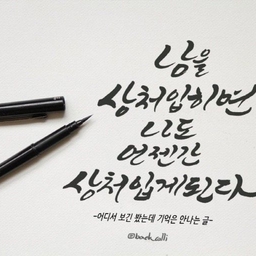 남을
상처입히면
너도
언젠간
상처입게된다
-어디서 보긴 봤는데 기억은 안나는 글-
@baek_calli